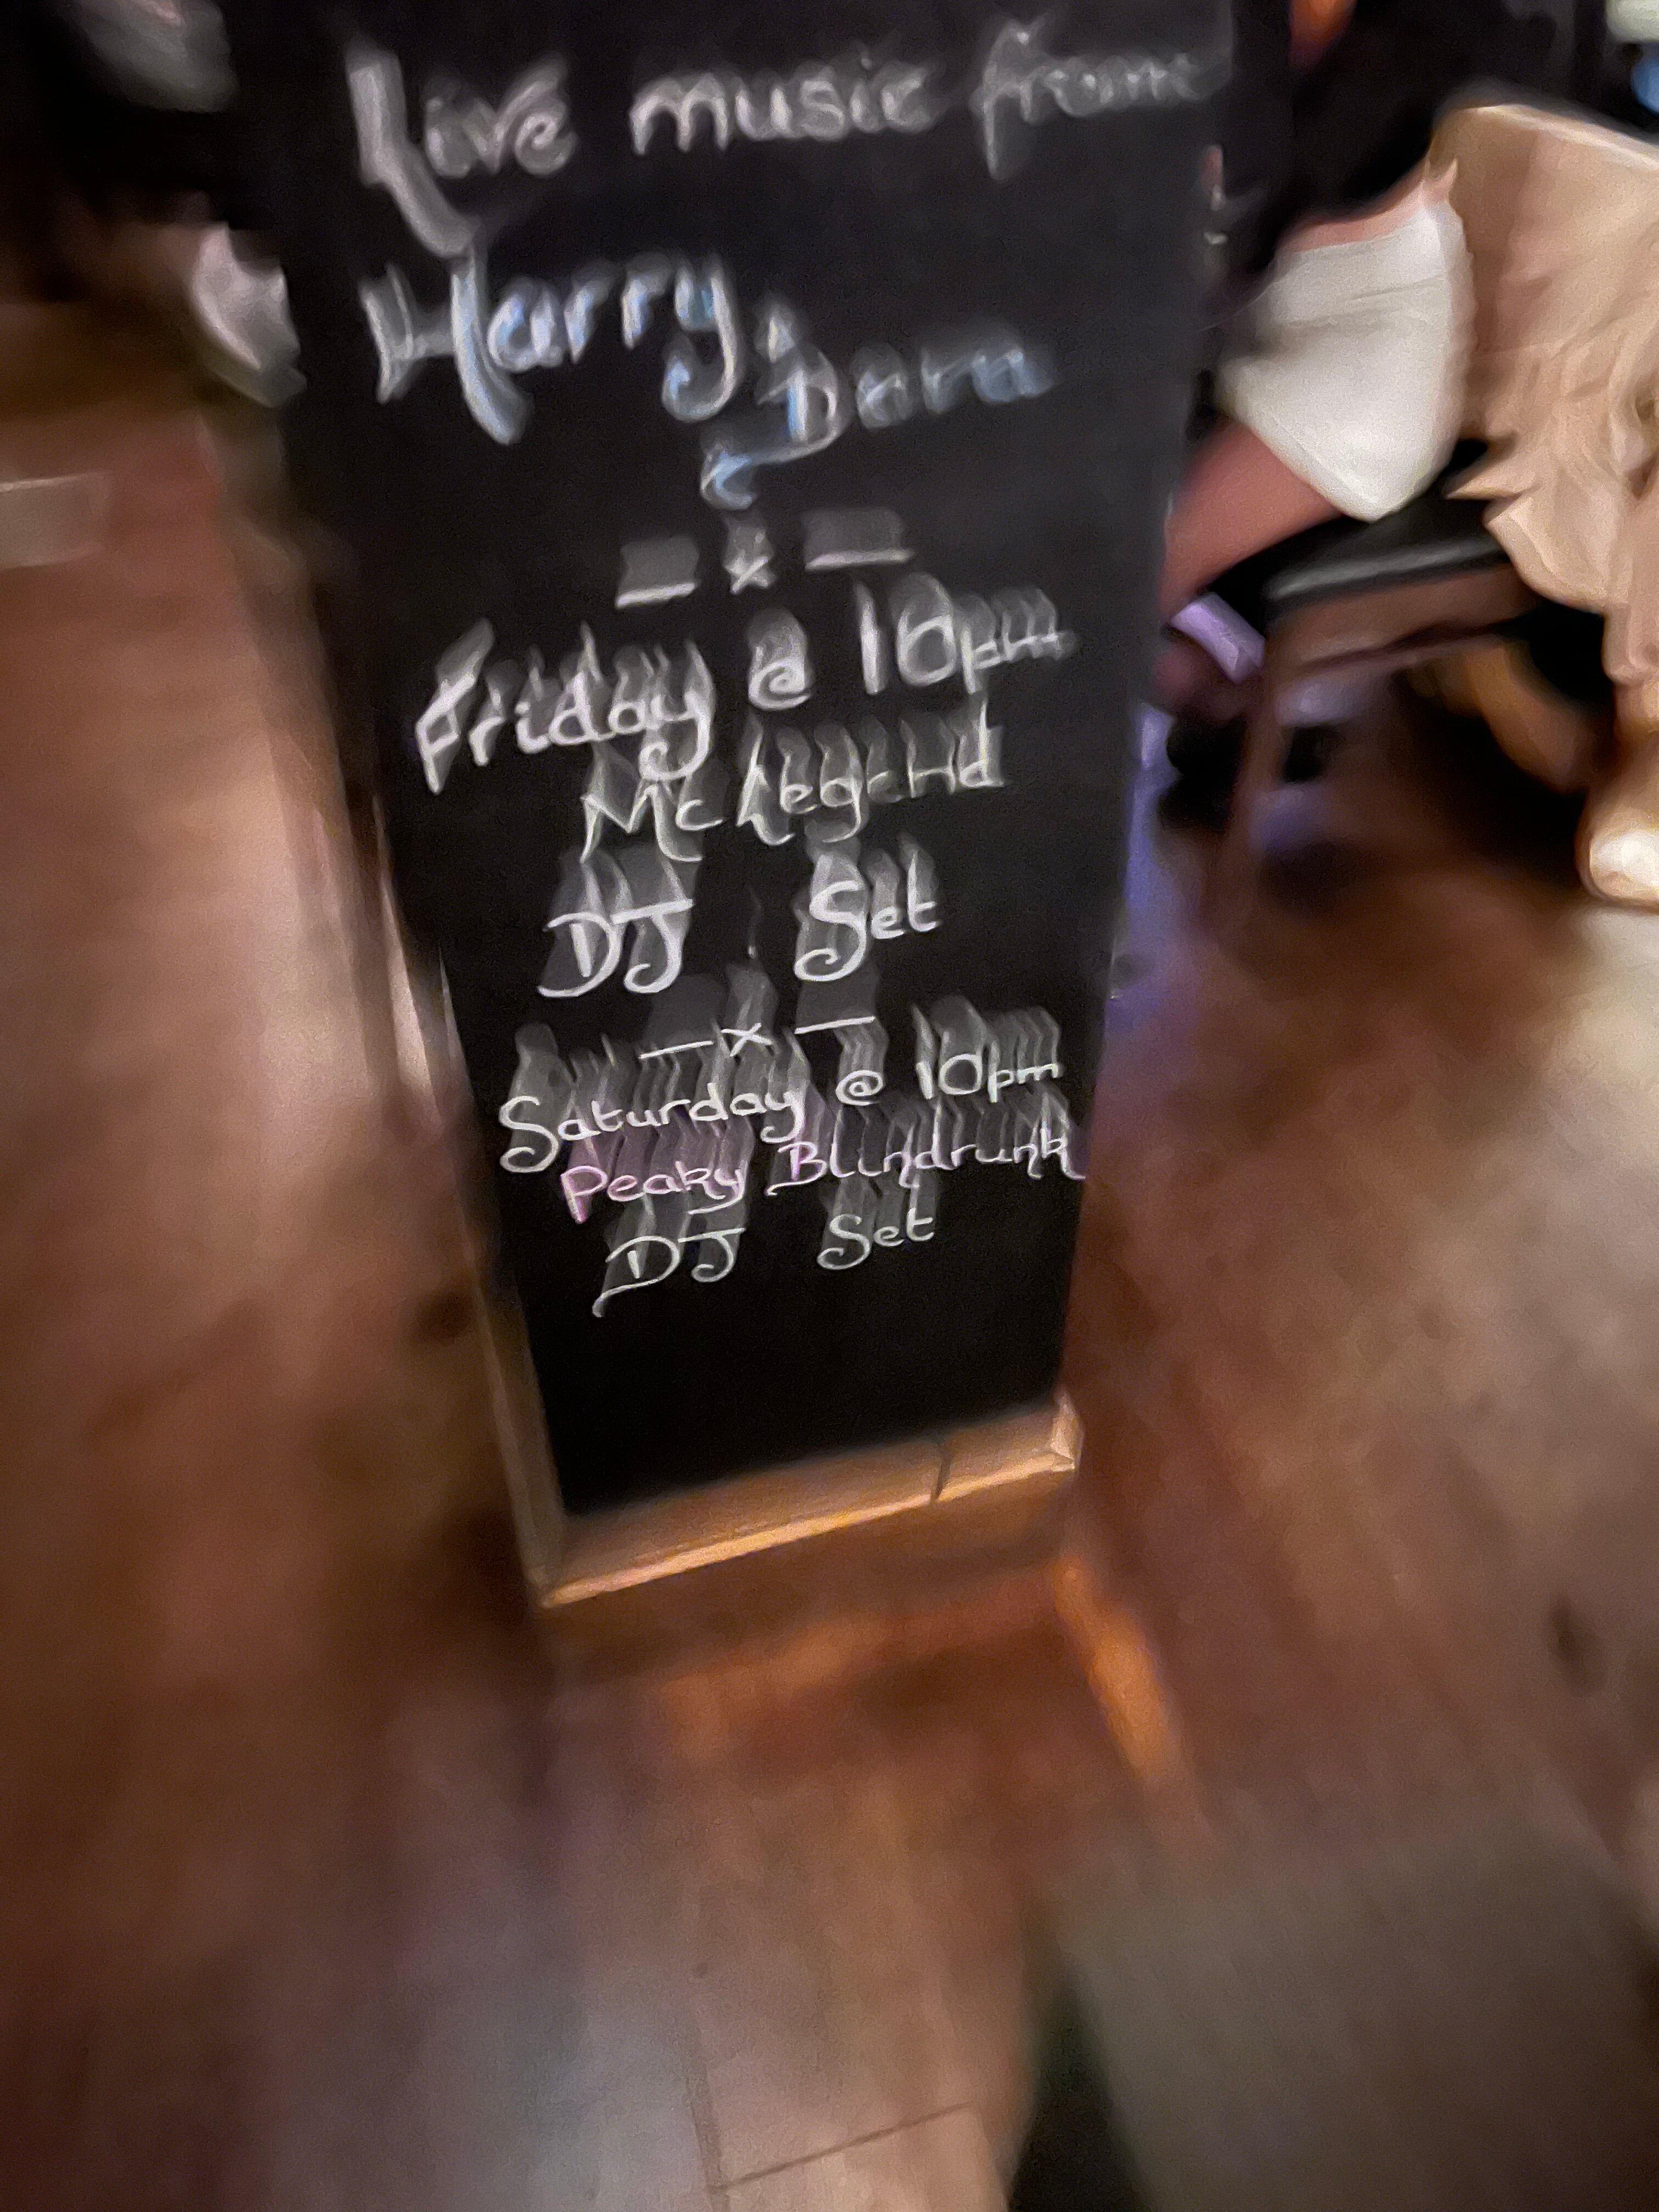 Live music from
Harry
— x —
Friday @ 10pm
Mc Legend
DJ Set
— x —
Saturday @ 10pm
Peaky Blindrunk
DJ Set